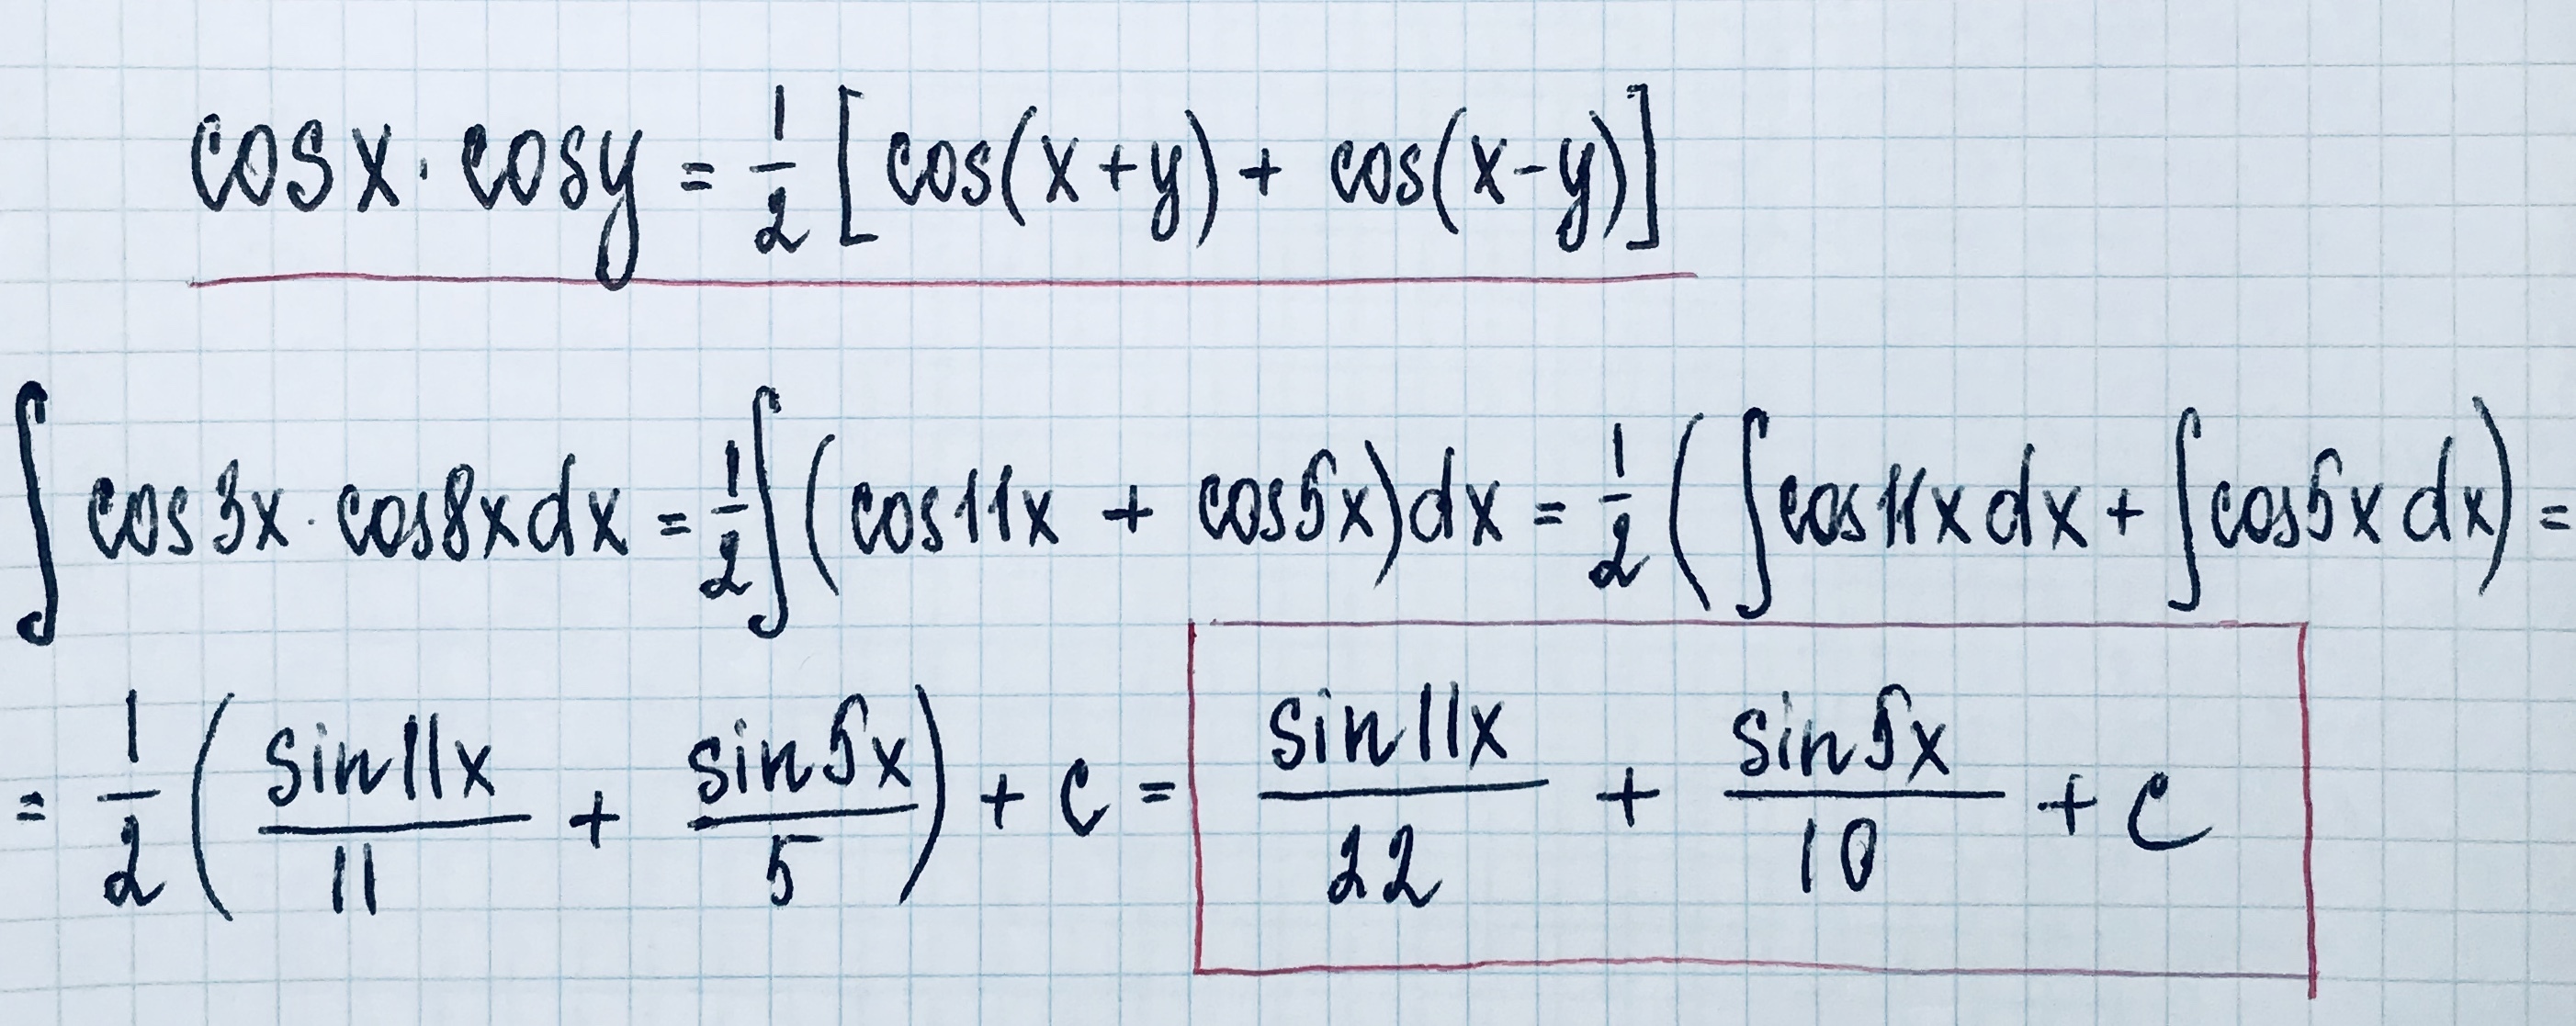 cosx · cosy = 1/2 [cos(x+y) + cos(x-y)]
∫ cos3x · cos8x dx = 1/2 ∫ (cos11x + cos5x)dx = 1/2 (∫cos11x dx + ∫cos5x dx) =
= 1/2 (sin11x/11 + sin5x/5) + c = sin11x/22 + sin5x/10 + c